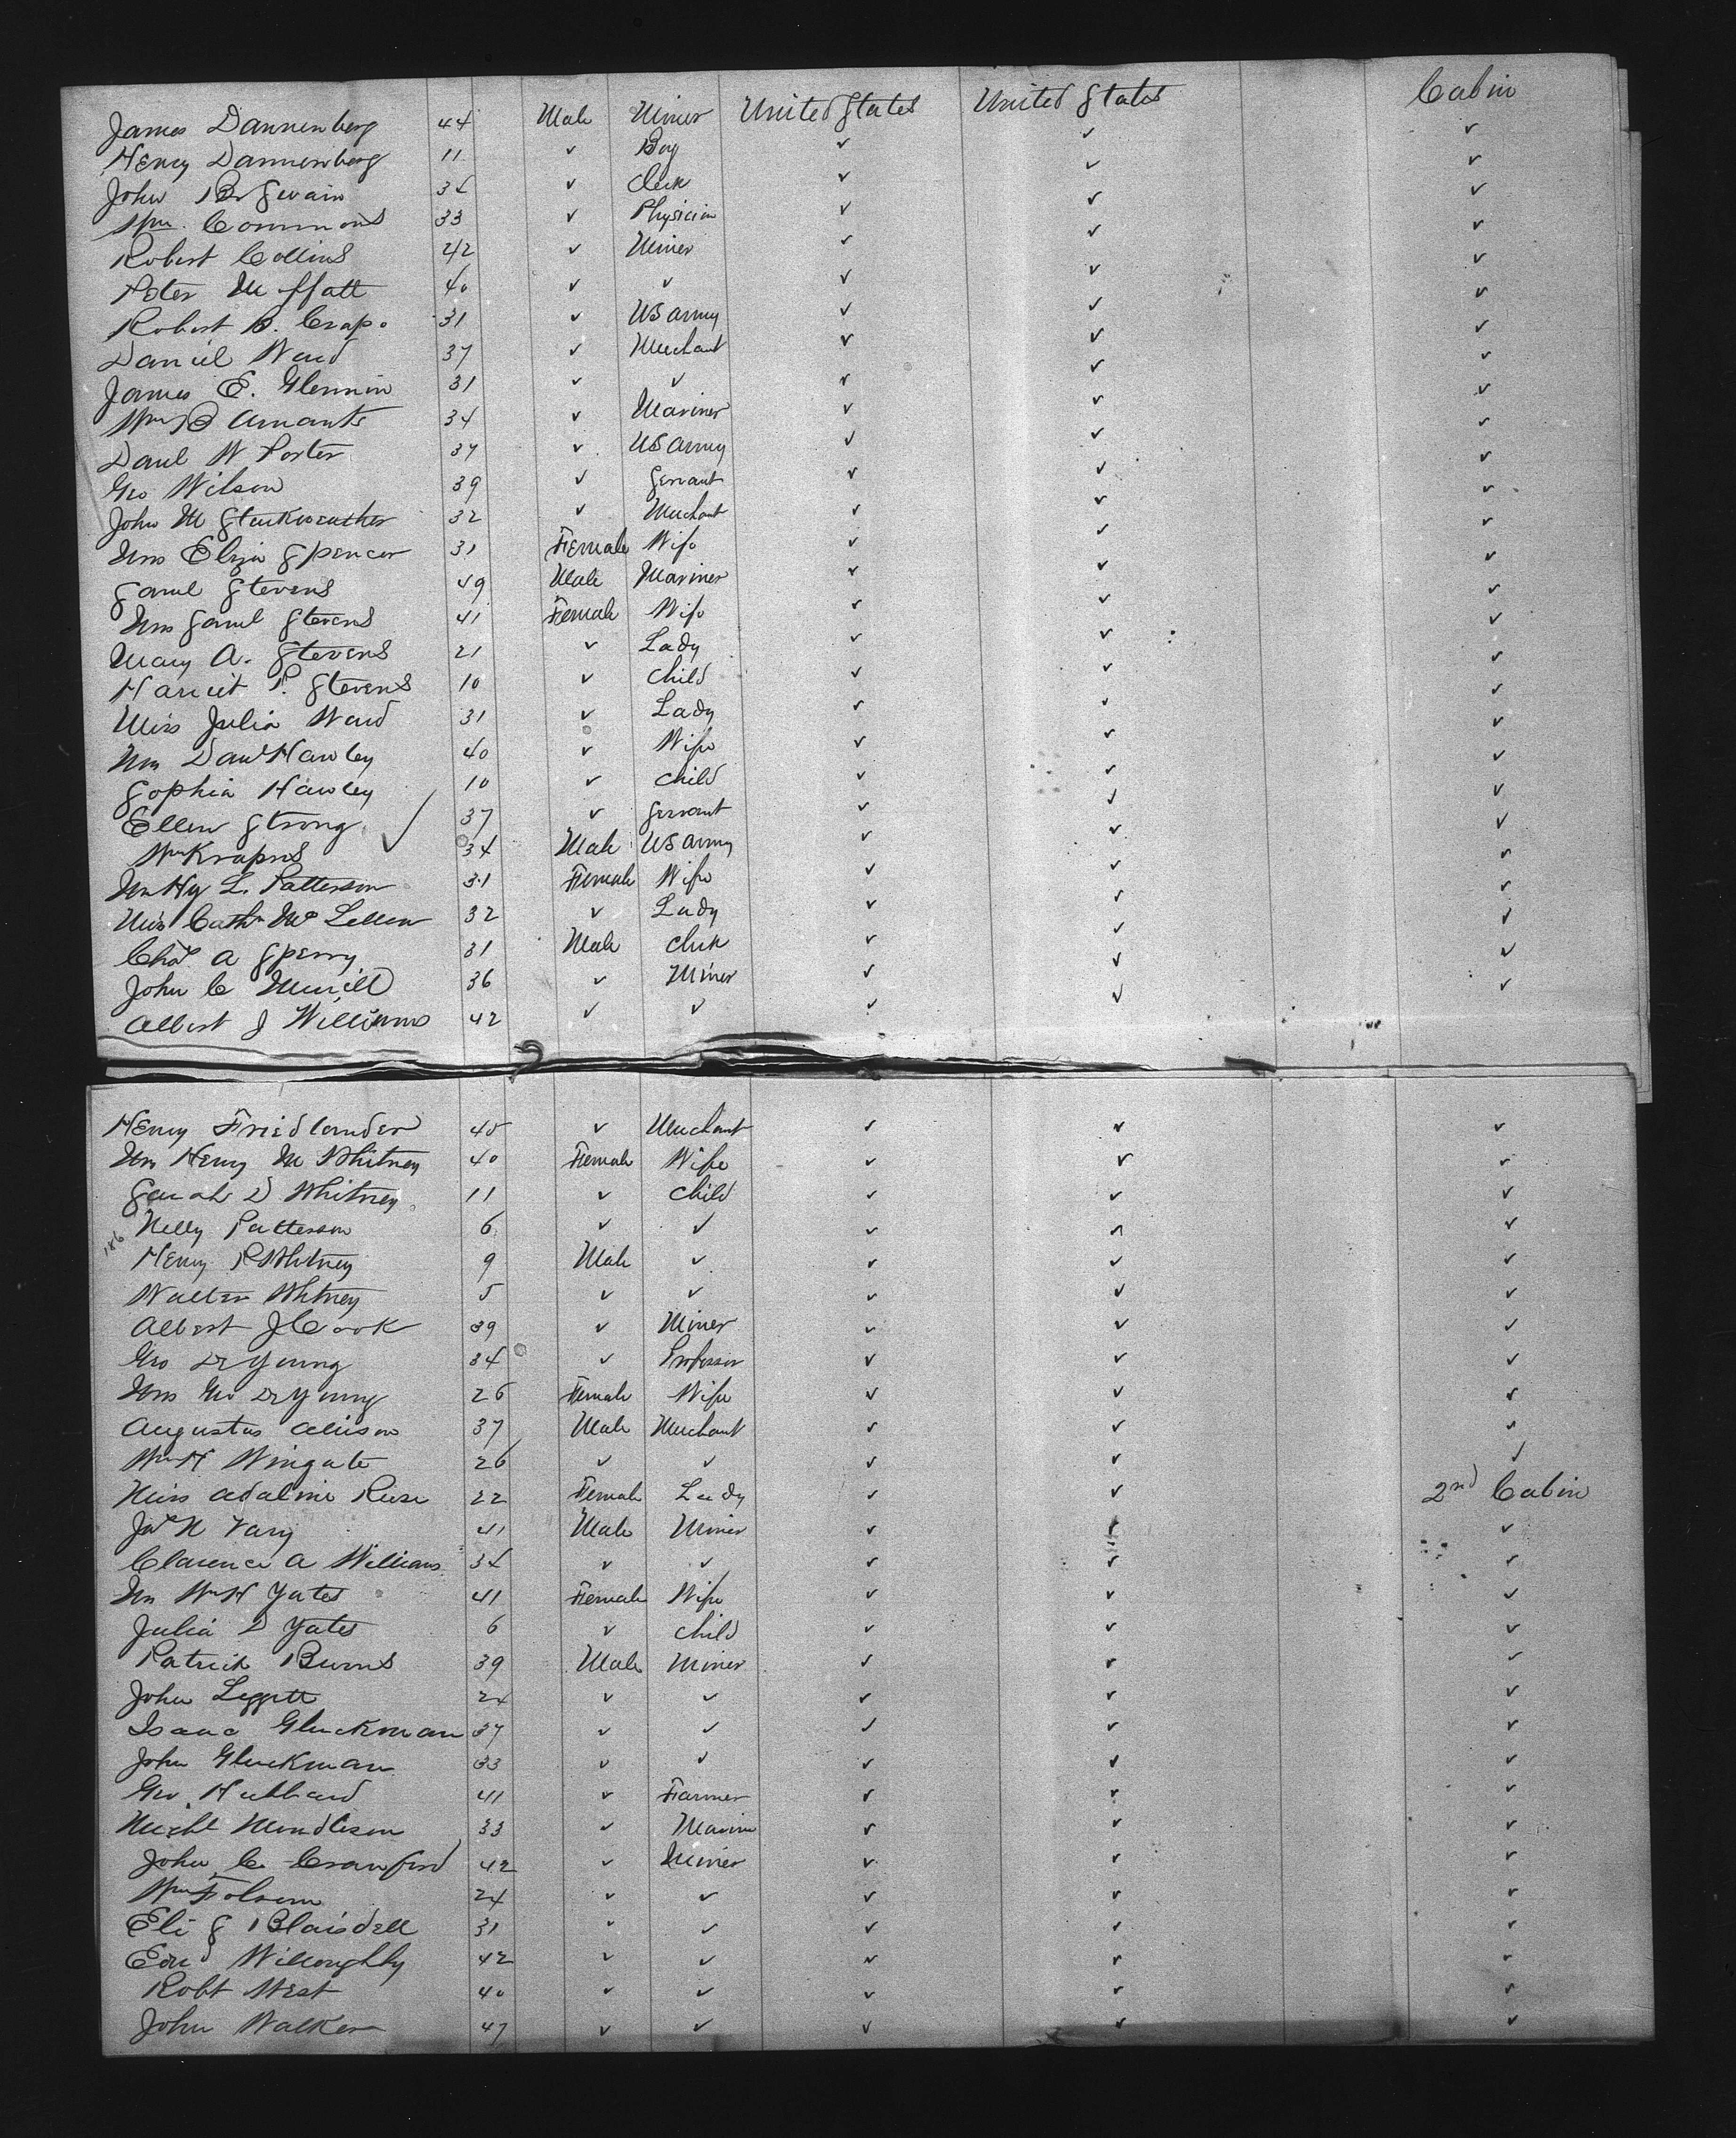 James Dannenberg 44 Male Miner United States United States Cabin
Henry Dannenberg 11 ✓ Boy ✓ ✓ ✓
John B Swain 34 ✓ Clerk ✓ ✓ ✓
Wm. Commons 33 ✓ Physician ✓ ✓ ✓
Robert Collins 42 ✓ Miner ✓ ✓ ✓
Peter Moffatt 40 ✓ ✓ ✓ ✓ ✓
Robert B. Crapo 31 ✓ US Army ✓ ✓ ✓
Daniel Ward 37 ✓ Merchant ✓ ✓ ✓
James E. Glennin 31 ✓ ✓ ✓ ✓ ✓
Wm B 34 ✓ Mariner ✓ ✓ ✓
Danl W Porter 37 ✓ US Army ✓ ✓ ✓
Geo Wilson 39 ✓ Servant ✓ ✓ ✓
John M Starkweather 32 ✓ Merchant ✓ ✓ ✓
Mrs Eliza Spencer 31 Female Wife ✓ ✓ ✓
Saml Stevens 49 Male Mariner ✓ ✓ ✓
Mrs Saml Stevens 41 Female Wife ✓ ✓ ✓
Mary A. Stevens 21 ✓ Lady ✓ ✓ ✓
Harriet P. Stevens 10 ✓ Child ✓ ✓ ✓
Miss Julia Ward 31 ✓ Lady ✓ ✓ ✓
Mrs Davd Hawley 40 ✓ Wife ✓ ✓ ✓
Sophia Hawley 10 ✓ Child ✓ ✓ ✓
Ellen Strong ✓ 37 ✓ Servant ✓ ✓ ✓
Wm 34 Male US Army ✓ ✓ ✓
Mrs Hy L. Patterson 31 Female Wife ✓ ✓ ✓
Miss Cathn McLellen 32 ✓ Lady ✓ ✓ ✓
Chas A Sperry 31 Male Clerk ✓ ✓ ✓
John C Merrill 36 ✓ Miner ✓ ✓ ✓
Albert J Williams 42 ✓ ✓ ✓ ✓
Henry Friedlander 45 ✓ Merchant ✓ ✓ ✓
Mrs Henry M Whitney 40 Female Wife ✓ ✓ ✓
Sarah D Whitney 11 ✓ Child ✓ ✓ ✓
186 Nelly Patterson 6 ✓ ✓ ✓ ✓ ✓
Henry R Whitney 9 Male ✓ ✓ ✓ ✓
Walter Whitney 5 ✓ ✓ ✓ ✓ ✓
Albert J Cook 39 ✓ Miner ✓ ✓ ✓
Geo De Young 34 ✓ Professor ✓ ✓ ✓
Mrs Geo De Young 26 Female Wife ✓ ✓ ✓
Augustus Allison 37 Male Merchant ✓ ✓ ✓
Wm H Wingate 26 ✓ ✓ ✓ ✓ ✓
Miss Adaline 22 Female Lady ✓ ✓ 2nd Cabin
Jas N Vary 41 Male Miner ✓ ✓ ✓
Clarence A Williams 34 ✓ ✓ ✓ ✓ ✓
Mrs Wm H Yates 41 Female Wife ✓ ✓ ✓
Julia D Yates 6 ✓ Child ✓ ✓ ✓
Patrick Burns 39 Male Miner ✓ ✓ ✓
John Leggett 24 ✓ ✓ ✓ ✓ ✓
Isaac Gluckman 37 ✓ ✓ ✓ ✓ ✓
John Gluckman 33 ✓ ✓ ✓ ✓ ✓
Geo. Hubbard 41 ✓ Farmer ✓ ✓ ✓
Michl Mendleson 33 ✓ ✓ ✓ ✓
John C Crawford 42 ✓ Miner ✓ ✓ ✓
Wm Folsom 24 ✓ ✓ ✓ ✓ ✓
Eli S Blaisdell 31 ✓ ✓ ✓ ✓ ✓
Edwd Willoughby 42 ✓ ✓ ✓ ✓ ✓
Robt West 40 ✓ ✓ ✓ ✓ ✓
John Walker 47 ✓ ✓ ✓ ✓ ✓